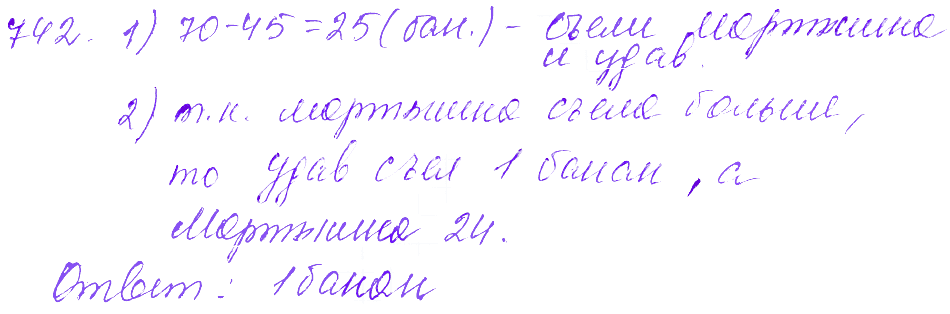 742. 1) 70-45=25 (бан.) - съели мартышка
и удав.
2) т.к. мартышка съела больше,
то удав съел 1 банан, а
мартышка 24.
Ответ: 1 банан